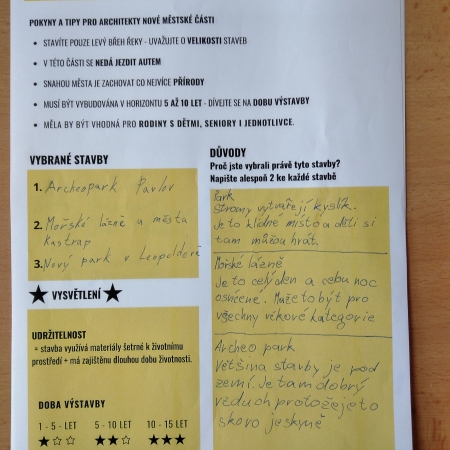 POKYNY A TIPY PRO ARCHITEKTY NOVÉ MĚSTSKÉ ČÁSTI
• STAVÍTE POUZE LEVÝ BŘEH ŘEKY - UVAŽUJTE O VELIKOSTI STAVEB
• V TÉTO ČÁSTI SE NEDÁ JEZDIT AUTEM
• SNAHOU MĚSTA JE ZACHOVAT CO NEJVÍCE PŘÍRODY
• MUSÍ BÝT VYBUDOVÁNA V HORIZONTU 5 AŽ 10 LET - DÍVEJTE SE NA DOBU VÝSTAVBY
• MĚLA BY BÝT VHODNÁ PRO RODINY S DĚTMI, SENIORY I JEDNOTLIVCE.
VYBRANÉ STAVBY
1. Archeopark Pavlov
2. Mořské lázně u města
Kastrap
3. Nový park v Leopoldově
★ VYSVĚTLENÍ ★
UDRŽITELNOST
= stavba využívá materiály šetrné k životnímu
prostředí + má zajištěnu dlouhou dobu životnosti.
DOBA VÝSTAVBY
1 - 5 - LET 5 - 10 LET 10 - 15 LET
DŮVODY
Proč jste vybrali právě tyto stavby?
Napište alespoň 2 ke každé stavbě
Park
Stromy vytvářejí kyslík.
Je to klidné místo a děti si
tam můžou hrát.
Mořské lázně
Je to celý den a celou noc
osvícené. Může to být pro
všechny věkové kategorie
Archeo park
Většina stavby je pod
zemí. Je tam dobrý
vzduch protože je to
skoro jeskyně